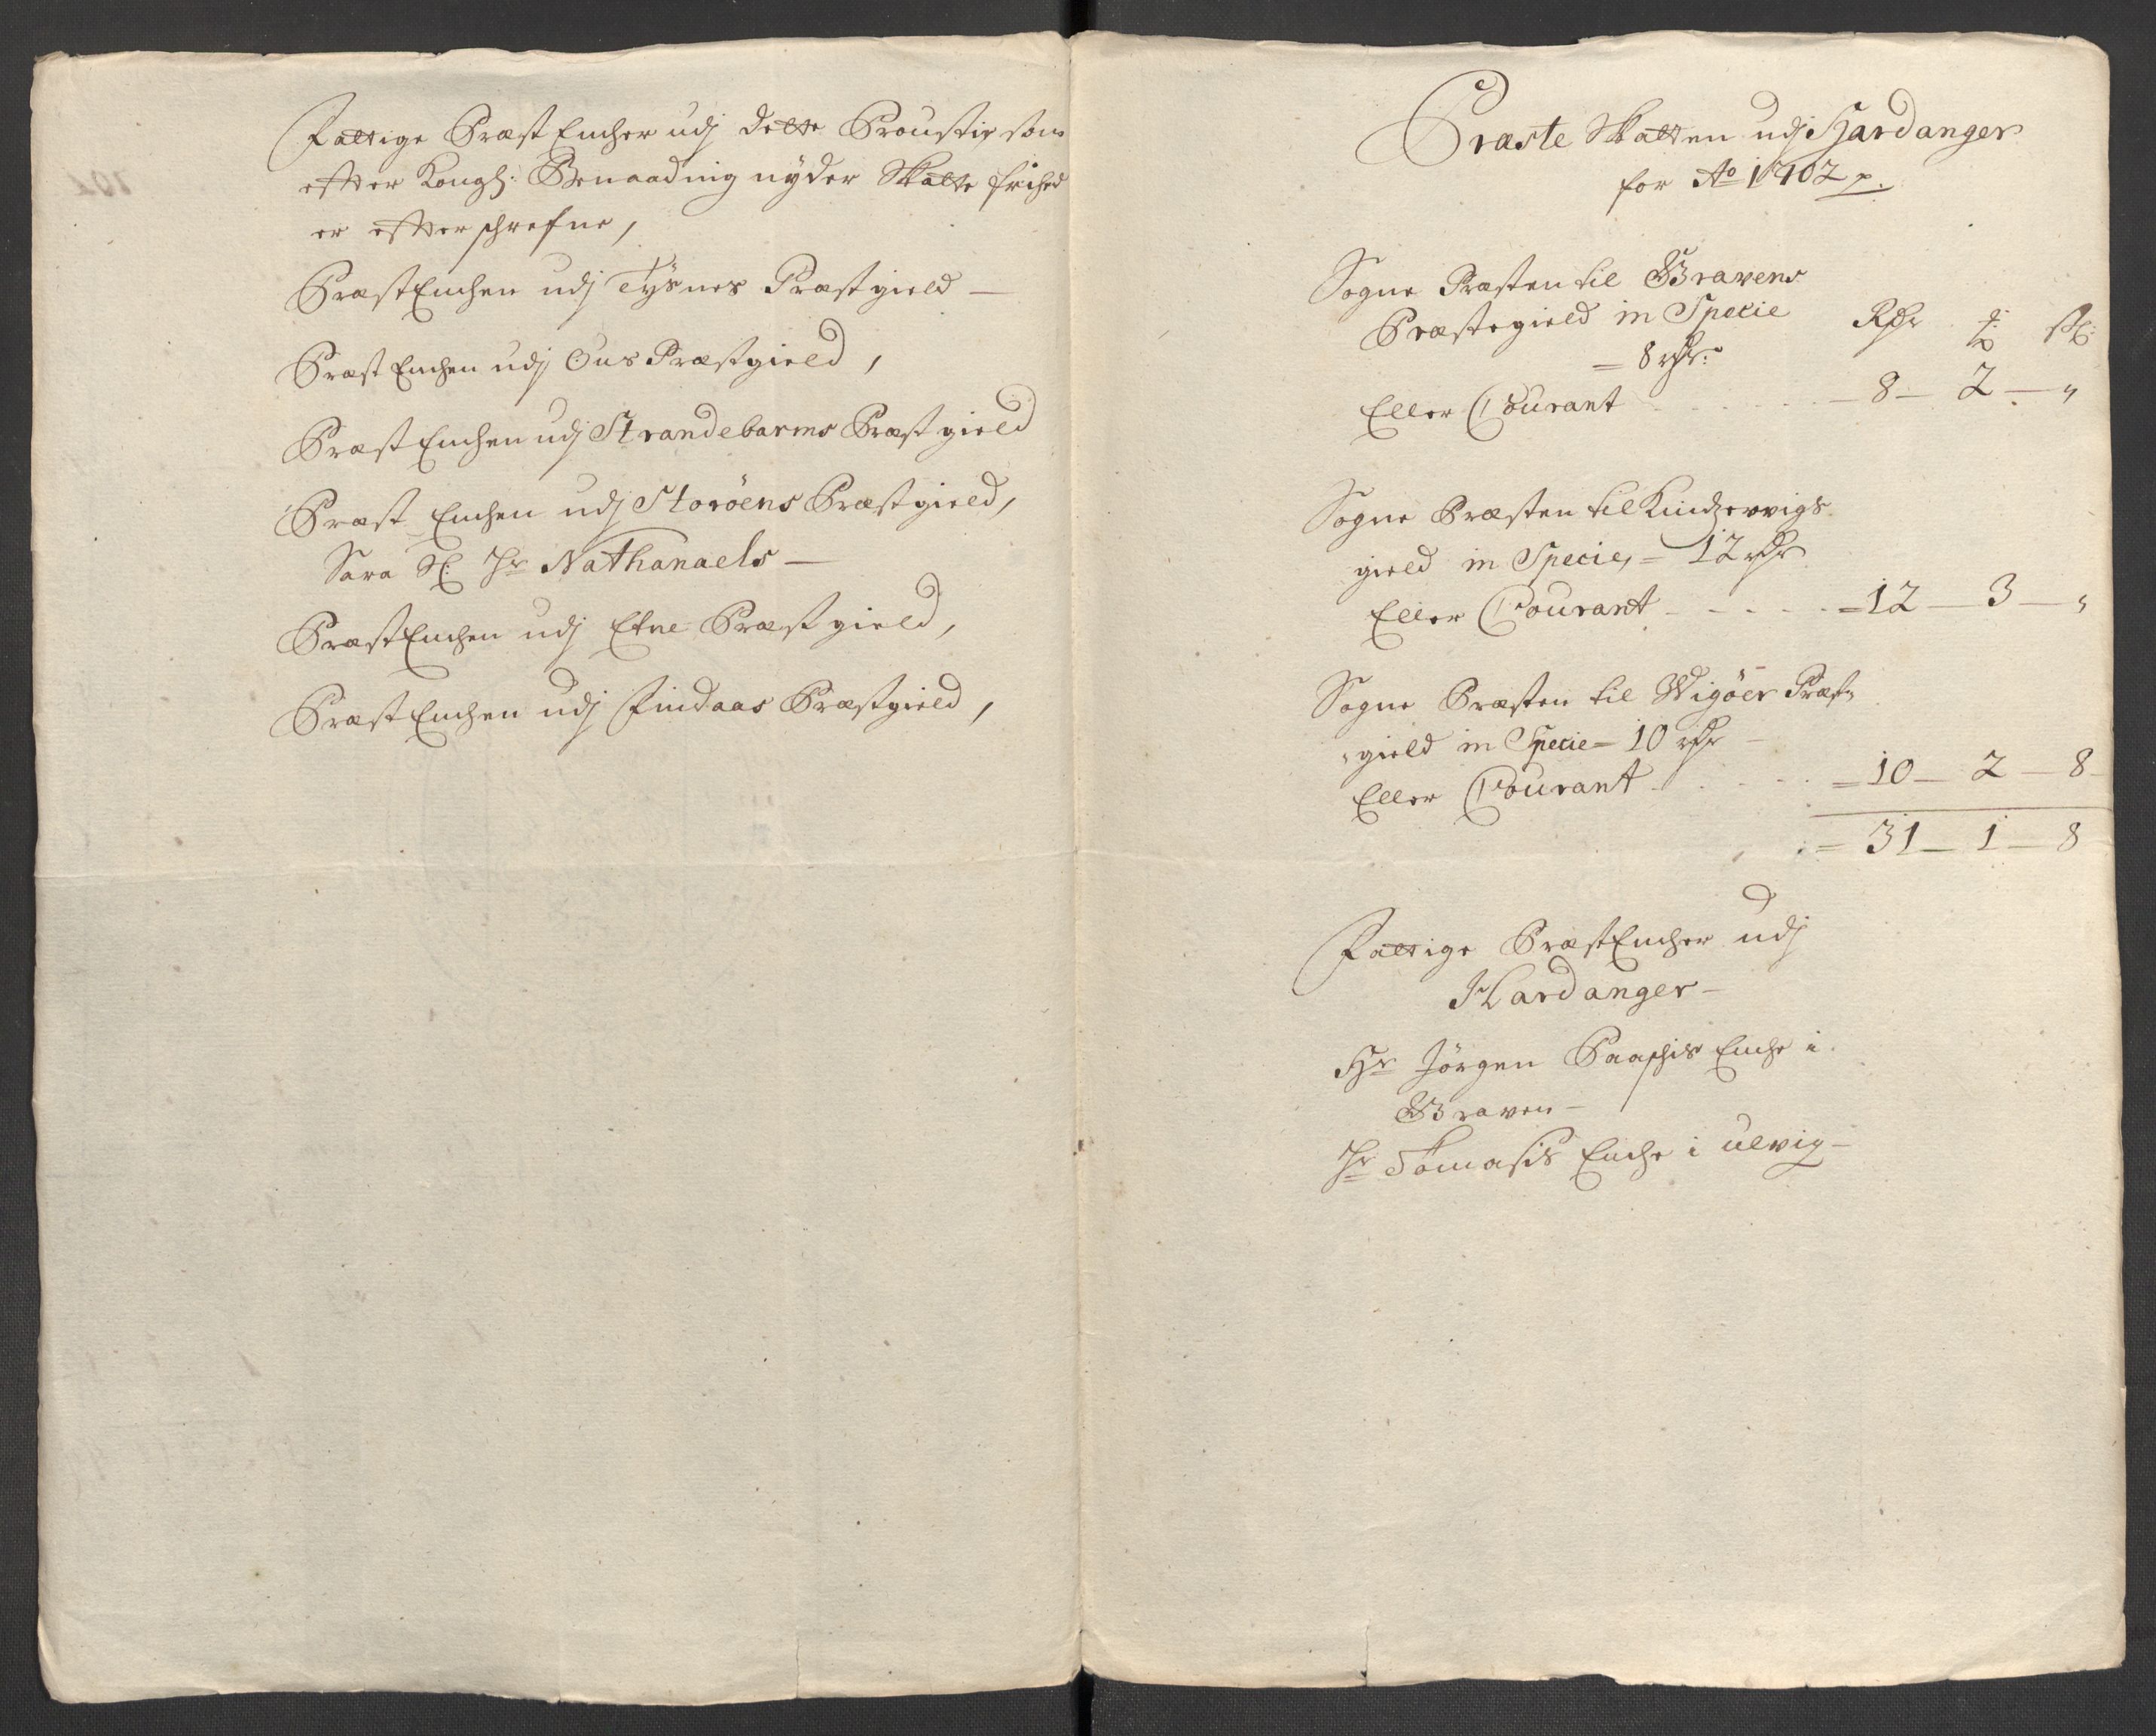 Fattige Præst Encher udj dette Proustie som
efter Kongl: Benaading nyder Skatte frihed
er efterschrefne,
PræstEnchen udj Tÿsnes Præstgield —
Præst Enchen udj Ous Præstgield,
Præst Enchen udj Strandebarms Præst gield
Præst Enchen udj Storöens Præstgield,
Sara Sl: Hr Nathanaels —
PræstEnchen udj Etne Præst gield,
PræstEnchen udj Findaas Præstgield,
Præste Skatten udj Hardanger
for Ao 1702
Sogne Præsten til Gravens
Præstegield in Specie Rdr sk:
= 8 rdr:
Eller Courant — 8 — 2 — "
Sogne Præsten til Kindzervigs
gield in Specie, = 12 rdr
Eller Courant = 12 — 3 — "
Sogne Præsten til Wigöer Præst
gield in Specie = 10 rdr
Eller Courant = 10 — 2 — 8
= 31 — 1 — 8
Fattige PræstEncher udj
Hardanger —
Hr Jörgen Enche i
Graven —
Hr Tomasis Enche i ulvig —